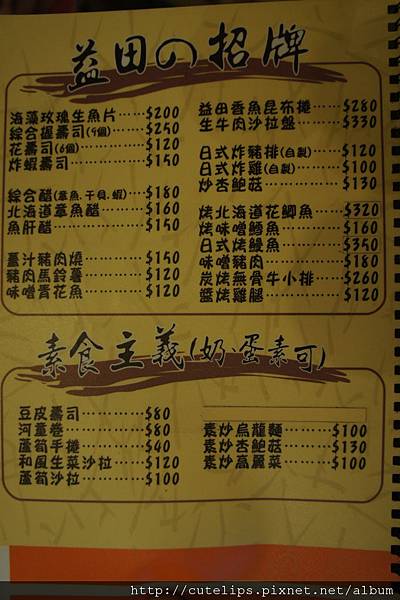 益田の招牌
海藻玫瑰生魚片……$200
綜合握壽司(9個)……$250
花壽司(6個)……$120
炸蝦壽司……$150
綜合醋(章魚.干貝.蝦)……$180
北海道章魚醋……$160
魚肝醋……$150
薑汁豬肉燒……$150
豬肉馬鈴薯……$120
味噌青花魚……$120
益田香魚昆布捲……$280
生牛肉沙拉盤……$330
日式炸豬排(自製)……$120
日式炸雞(自製)……$100
炒杏鮑菇……$130
烤北海道花鯽魚……$320
烤味噌鱈魚……$160
日式烤鰻魚……$350
味噌豬肉……$180
炭烤無骨牛小排……$260
醬烤雞腿……$120
素食主義(奶·蛋素可)
豆皮壽司……$80
河童卷……$80
蘆筍手捲……$40
和風生菜沙拉……$120
蘆筍沙拉……$100
素炒烏龍麵……$100
素炒杏鮑菇……$130
素炒高麗菜……$100
http://cutelips.pixnet.net/album